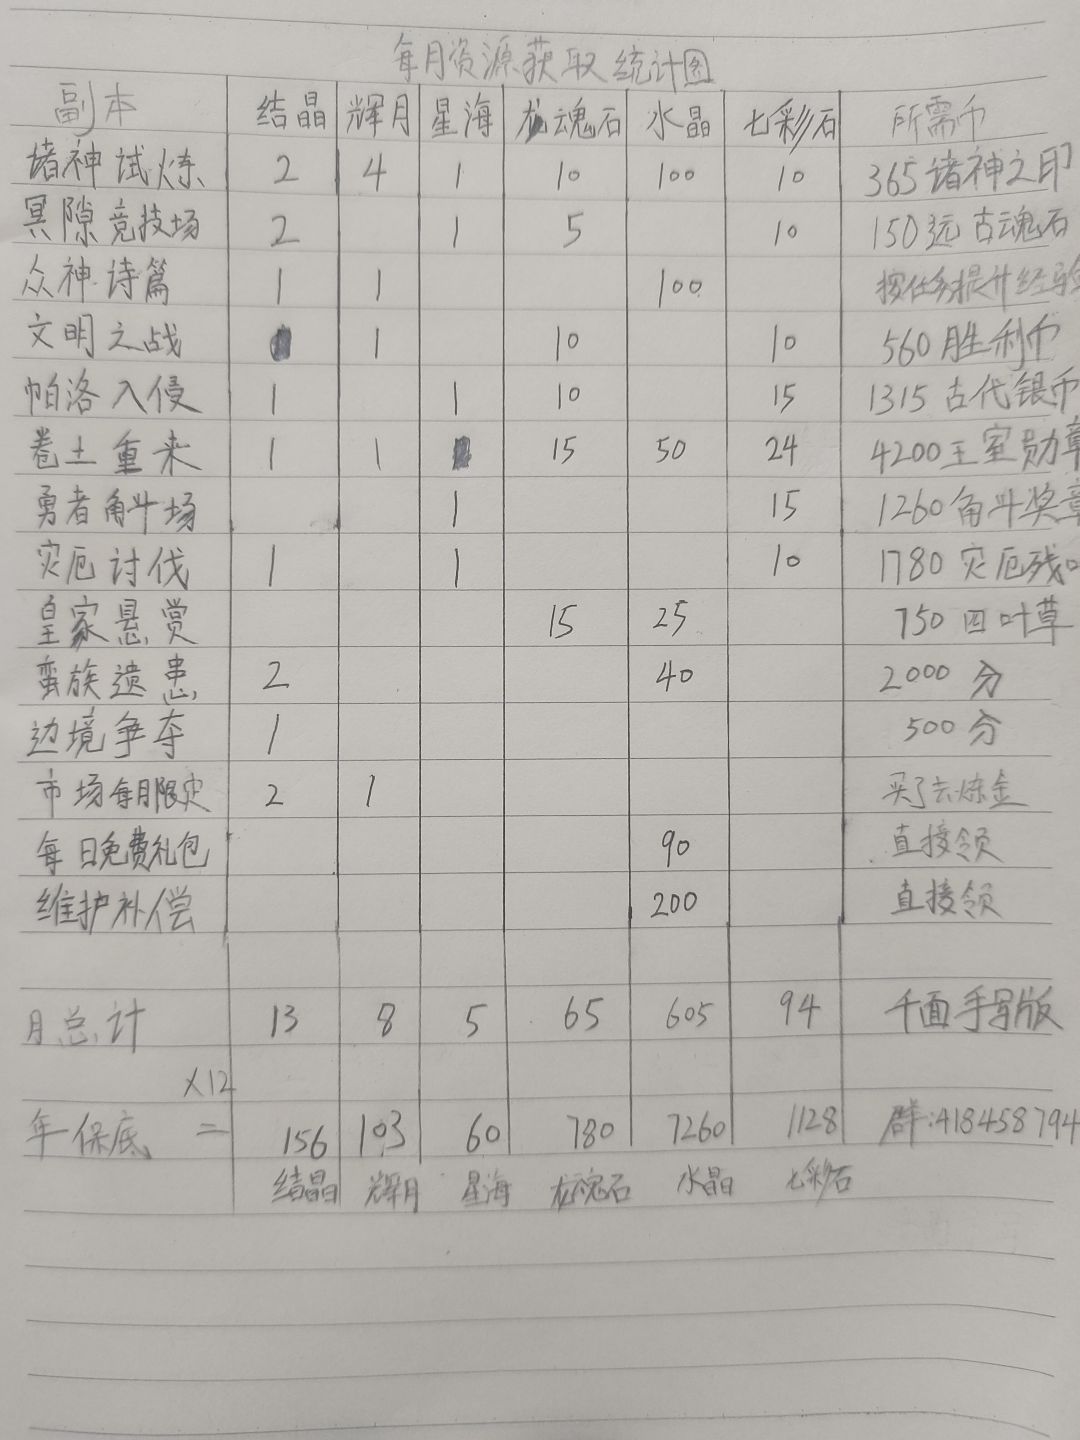 每月资源获取统计图
副本 结晶 辉月 星海 龙魂石 水晶 七彩石 所需币
诸神试炼 2 4 1 10 100 10 365诸神之印
冥隙竞技场 2 1 5 10 150远古魂石
众神诗篇 1 1 100 按任务提升经验
文明之战 1 10 10 560胜利币
帕洛入侵 1 1 10 15 1315古代银币
卷土重来 1 1 15 50 24 4200王室勋章
勇者角斗场 1 15 1260角斗奖章
灾厄讨伐 1 1 10 1780灾厄残
皇家悬赏 15 25 750四叶草
蛮族遗患 2 40 2000分
边境争夺 1 500分
市场每月限定 2 1 买了去炼金
每日免费礼包 90 直接领
维护补偿 200 直接领
月总计 13 8 5 65 605 94 千面手写版
×12
年保底 = 156 103 60 780 7260 1128 群:418458794
结晶 辉月 星海 龙魂石 水晶 七彩石